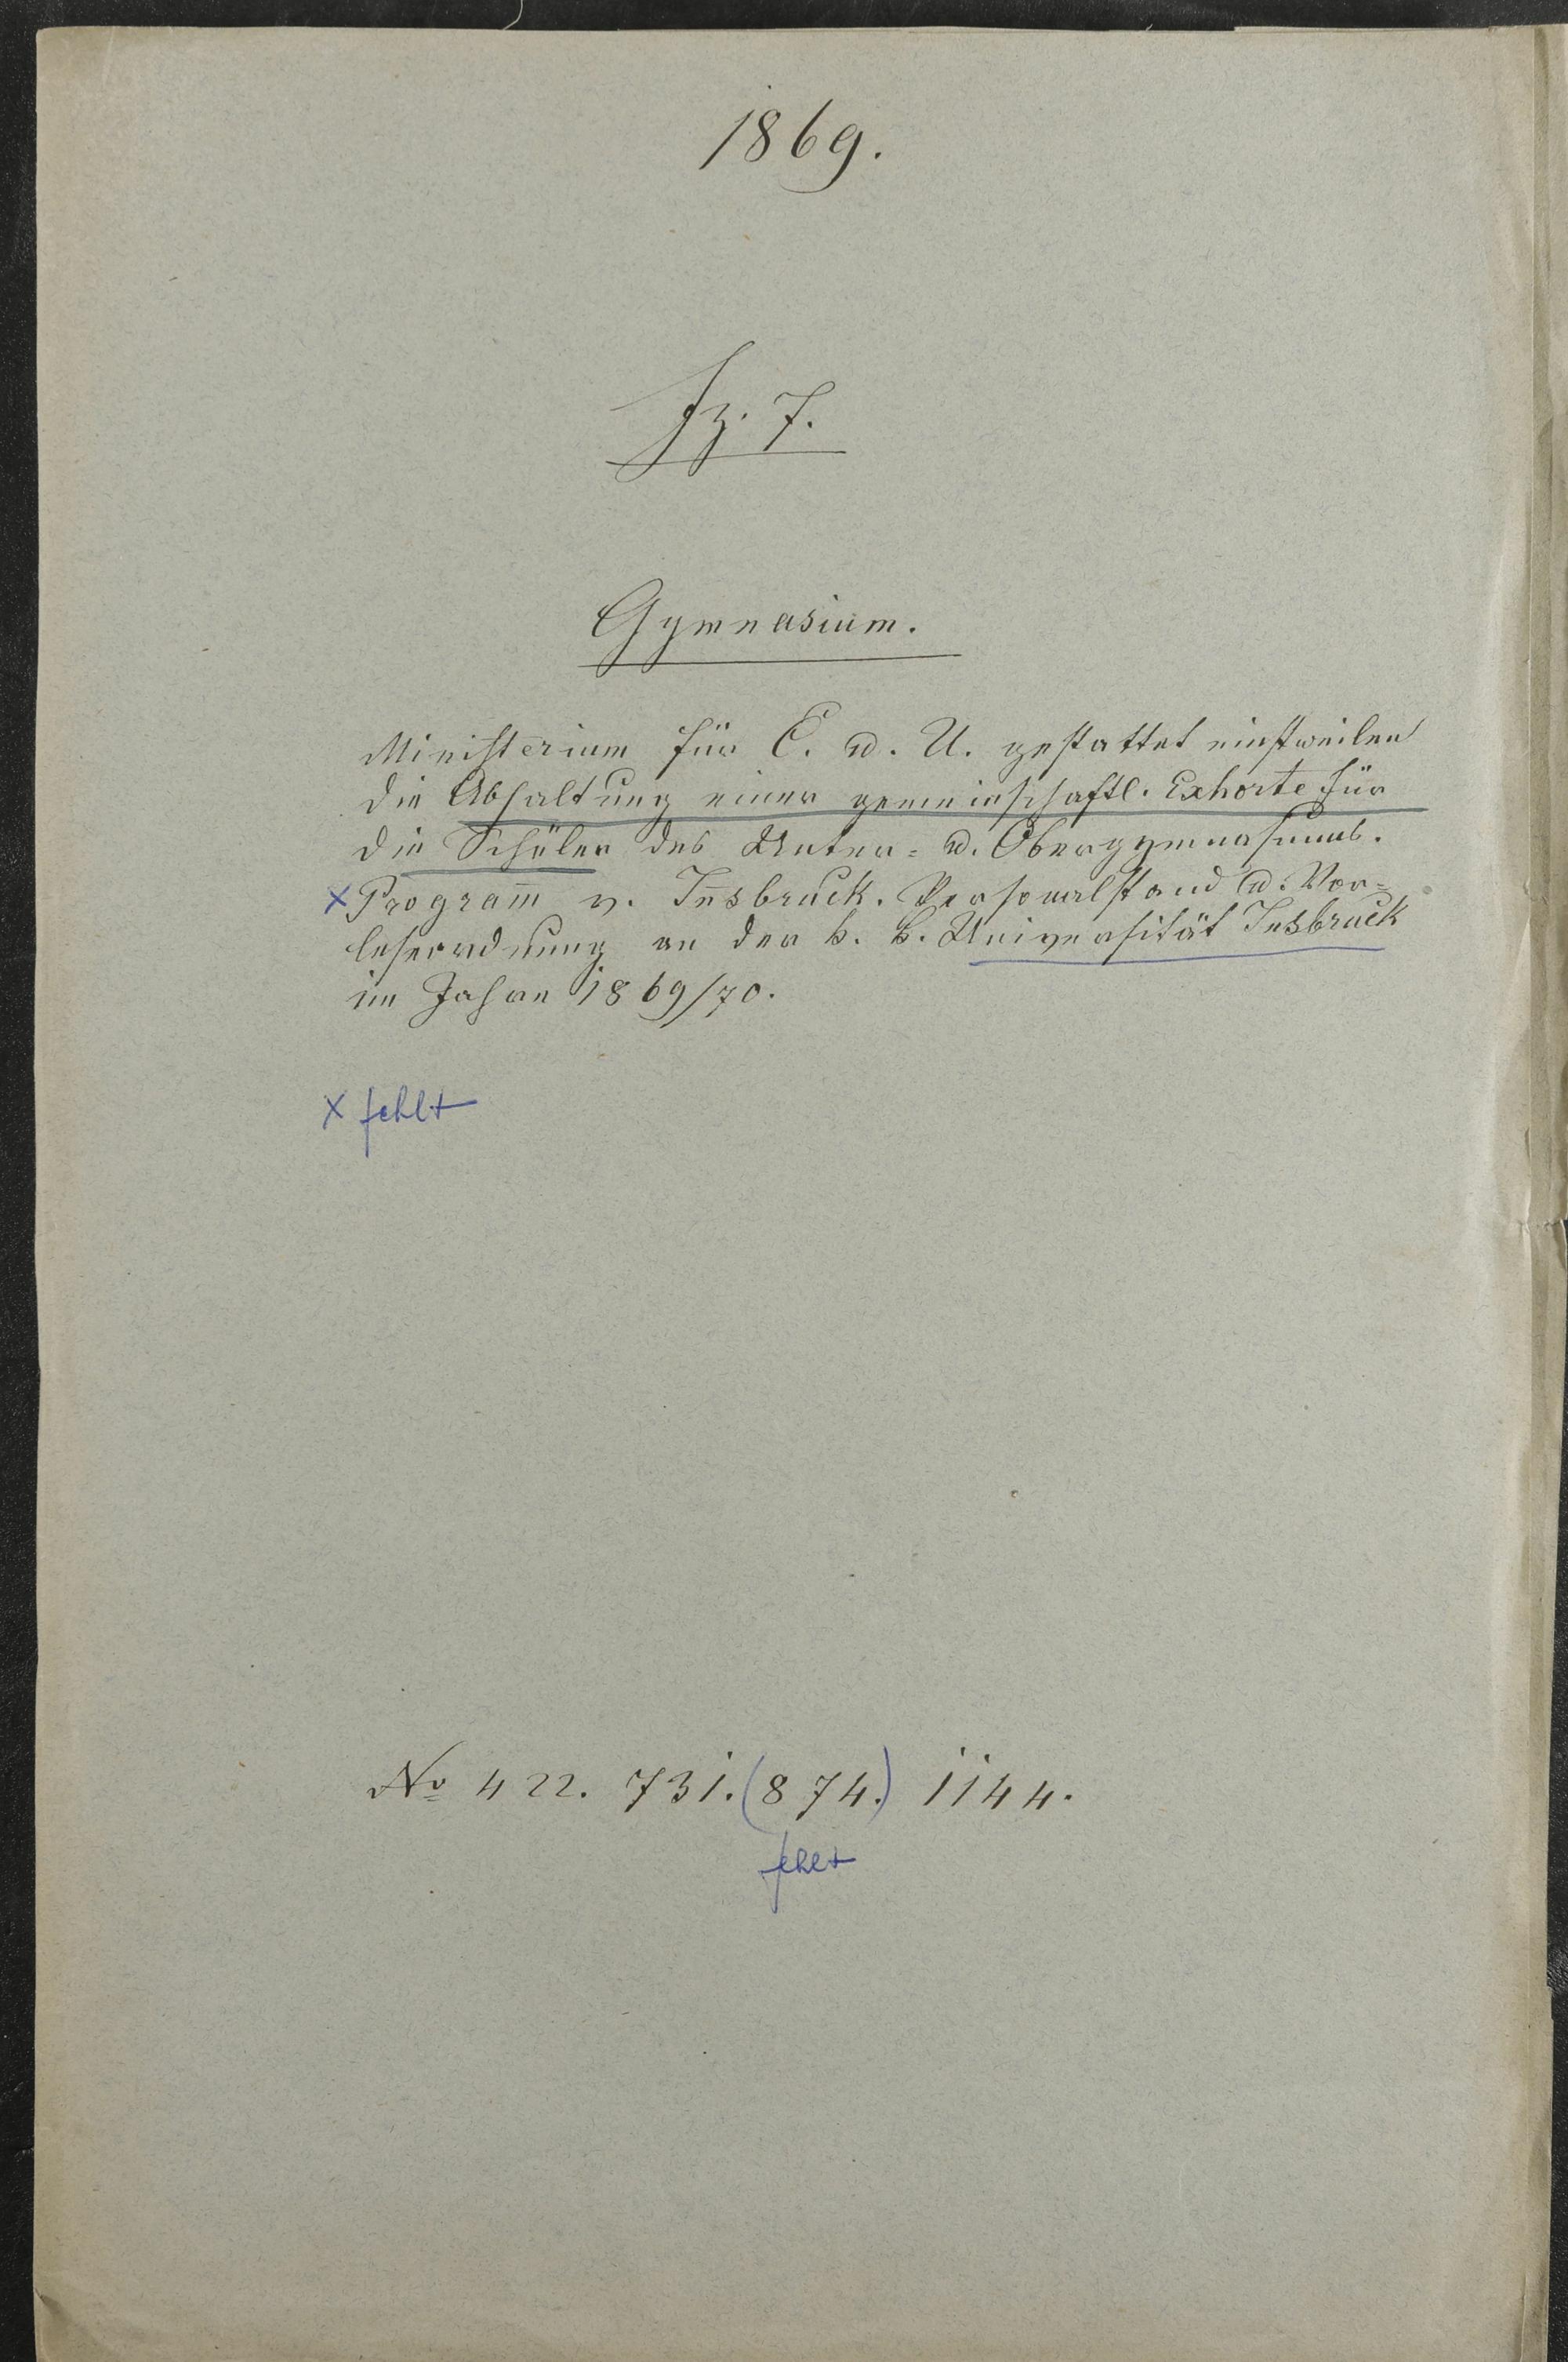 1869.
Fz. 7.
Gymnasium.
Ministerium für C. u. U. gestattet einstweilen
die Abhaltung einer gemeinschaftl. Exhorte für
die Schüler des Unter= u. Obergymnasiums.
x Program̅ v. In̅sbruck. Personalstand u. Vor=
leseordnung an der k. k. Universität Insbruck
im Jahre 1869/70.
x fehlt
No 422. 731. (874.) 1144.
fehlt